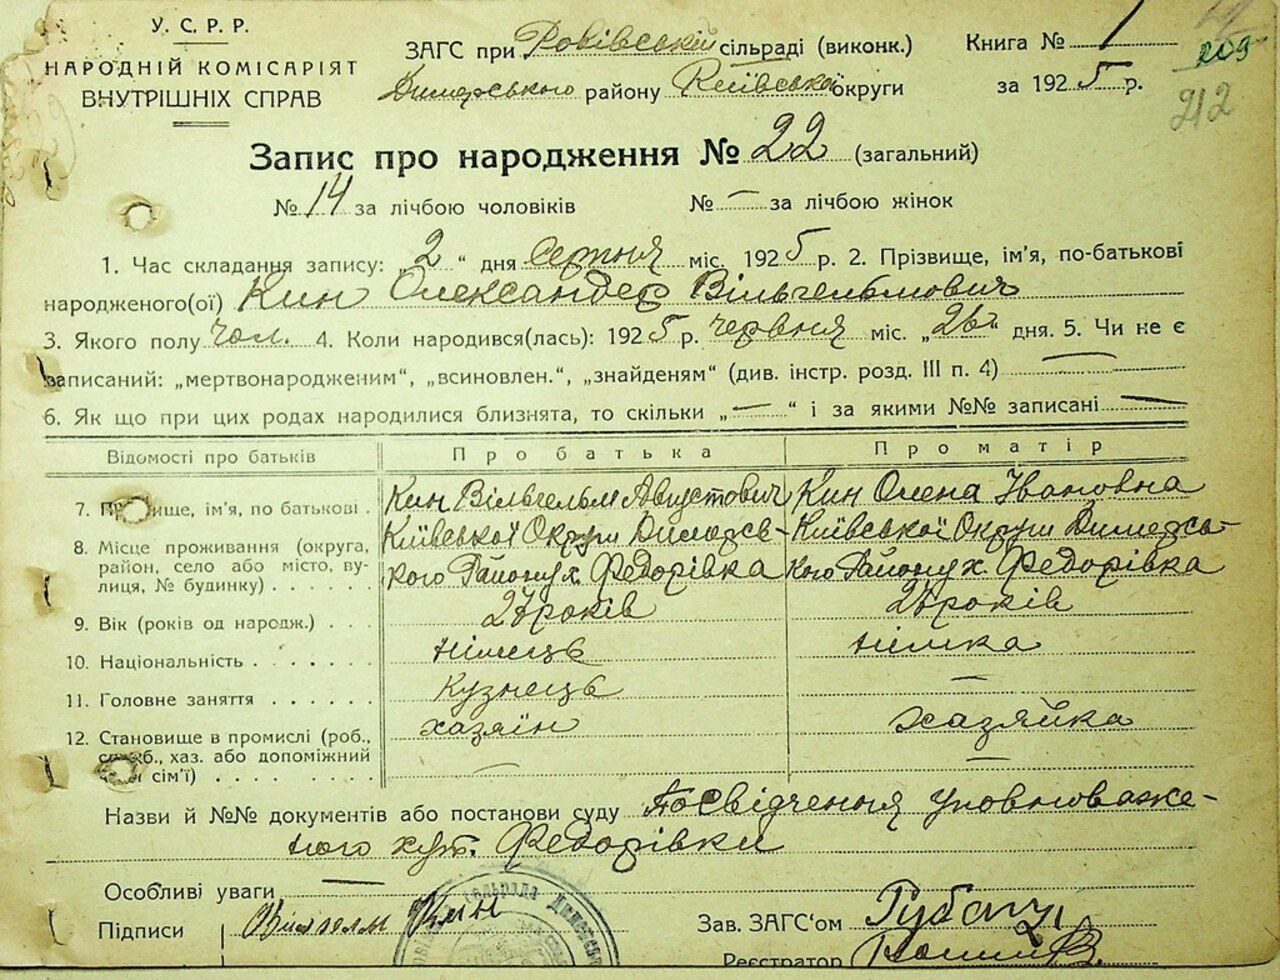 У. С. Р. Р.
НАРОДНІЙ КОМІСАРІЯТ
ВНУТРІШНІХ СПРАВ
ЗАГС при Ровівській сільраді (виконк.)
Димерського району Київської округи
Книга № 1
за 1925 р.
209
212
Запис про народження № 22 (загальний)
№ 14 за лічбою чоловіків № — за лічбою жінок
1. Час складання запису: „2“ дня серпня міс. 1925 р. 2. Прізвище, ім'я, по-батькові
народженого(ої) Кин Олександер Вільгельмович
3. Якого полу чол. 4. Коли народився(лась): 1925 р. червня міс. „26“ дня. 5. Чи не є
записаний: „мертвонародженим“, „всиновлен.“, „знайденям“ (див. інстр. розд. III п. 4) —
6. Як що при цих родах народилися близнята, то скільки „—“ і за якими №№ записані —
Відомості про батьків Про батька Про матір
7. Прізвище, ім'я, по батькові . Кин Вільгельм Августович Кин Олена Івановна
8. Місце проживання (округа, район, село або місто, вулиця, № будинку) . . . . . . Київської Округи Димерсь- Київської Округи Димерсь-
кого Району х. Федорівка кого Району х. Федорівка
9. Вік (років од народж.) . . років років
10. Національність . . . . . . . німець німка
11. Головне заняття . . . . . . кузнець —
12. Становище в промислі (роб., служб., хаз. або допоміжний член сім'ї) . . . . . . . . хазяїн хазяйка
— —
Назви й №№ документів або постанови суду Посвідчення уповноваже-
ного хут. Федорівки
Особливі уваги —
Підписи Вилгелм Кин
Зав. ЗАГС'ом
Реєстратор